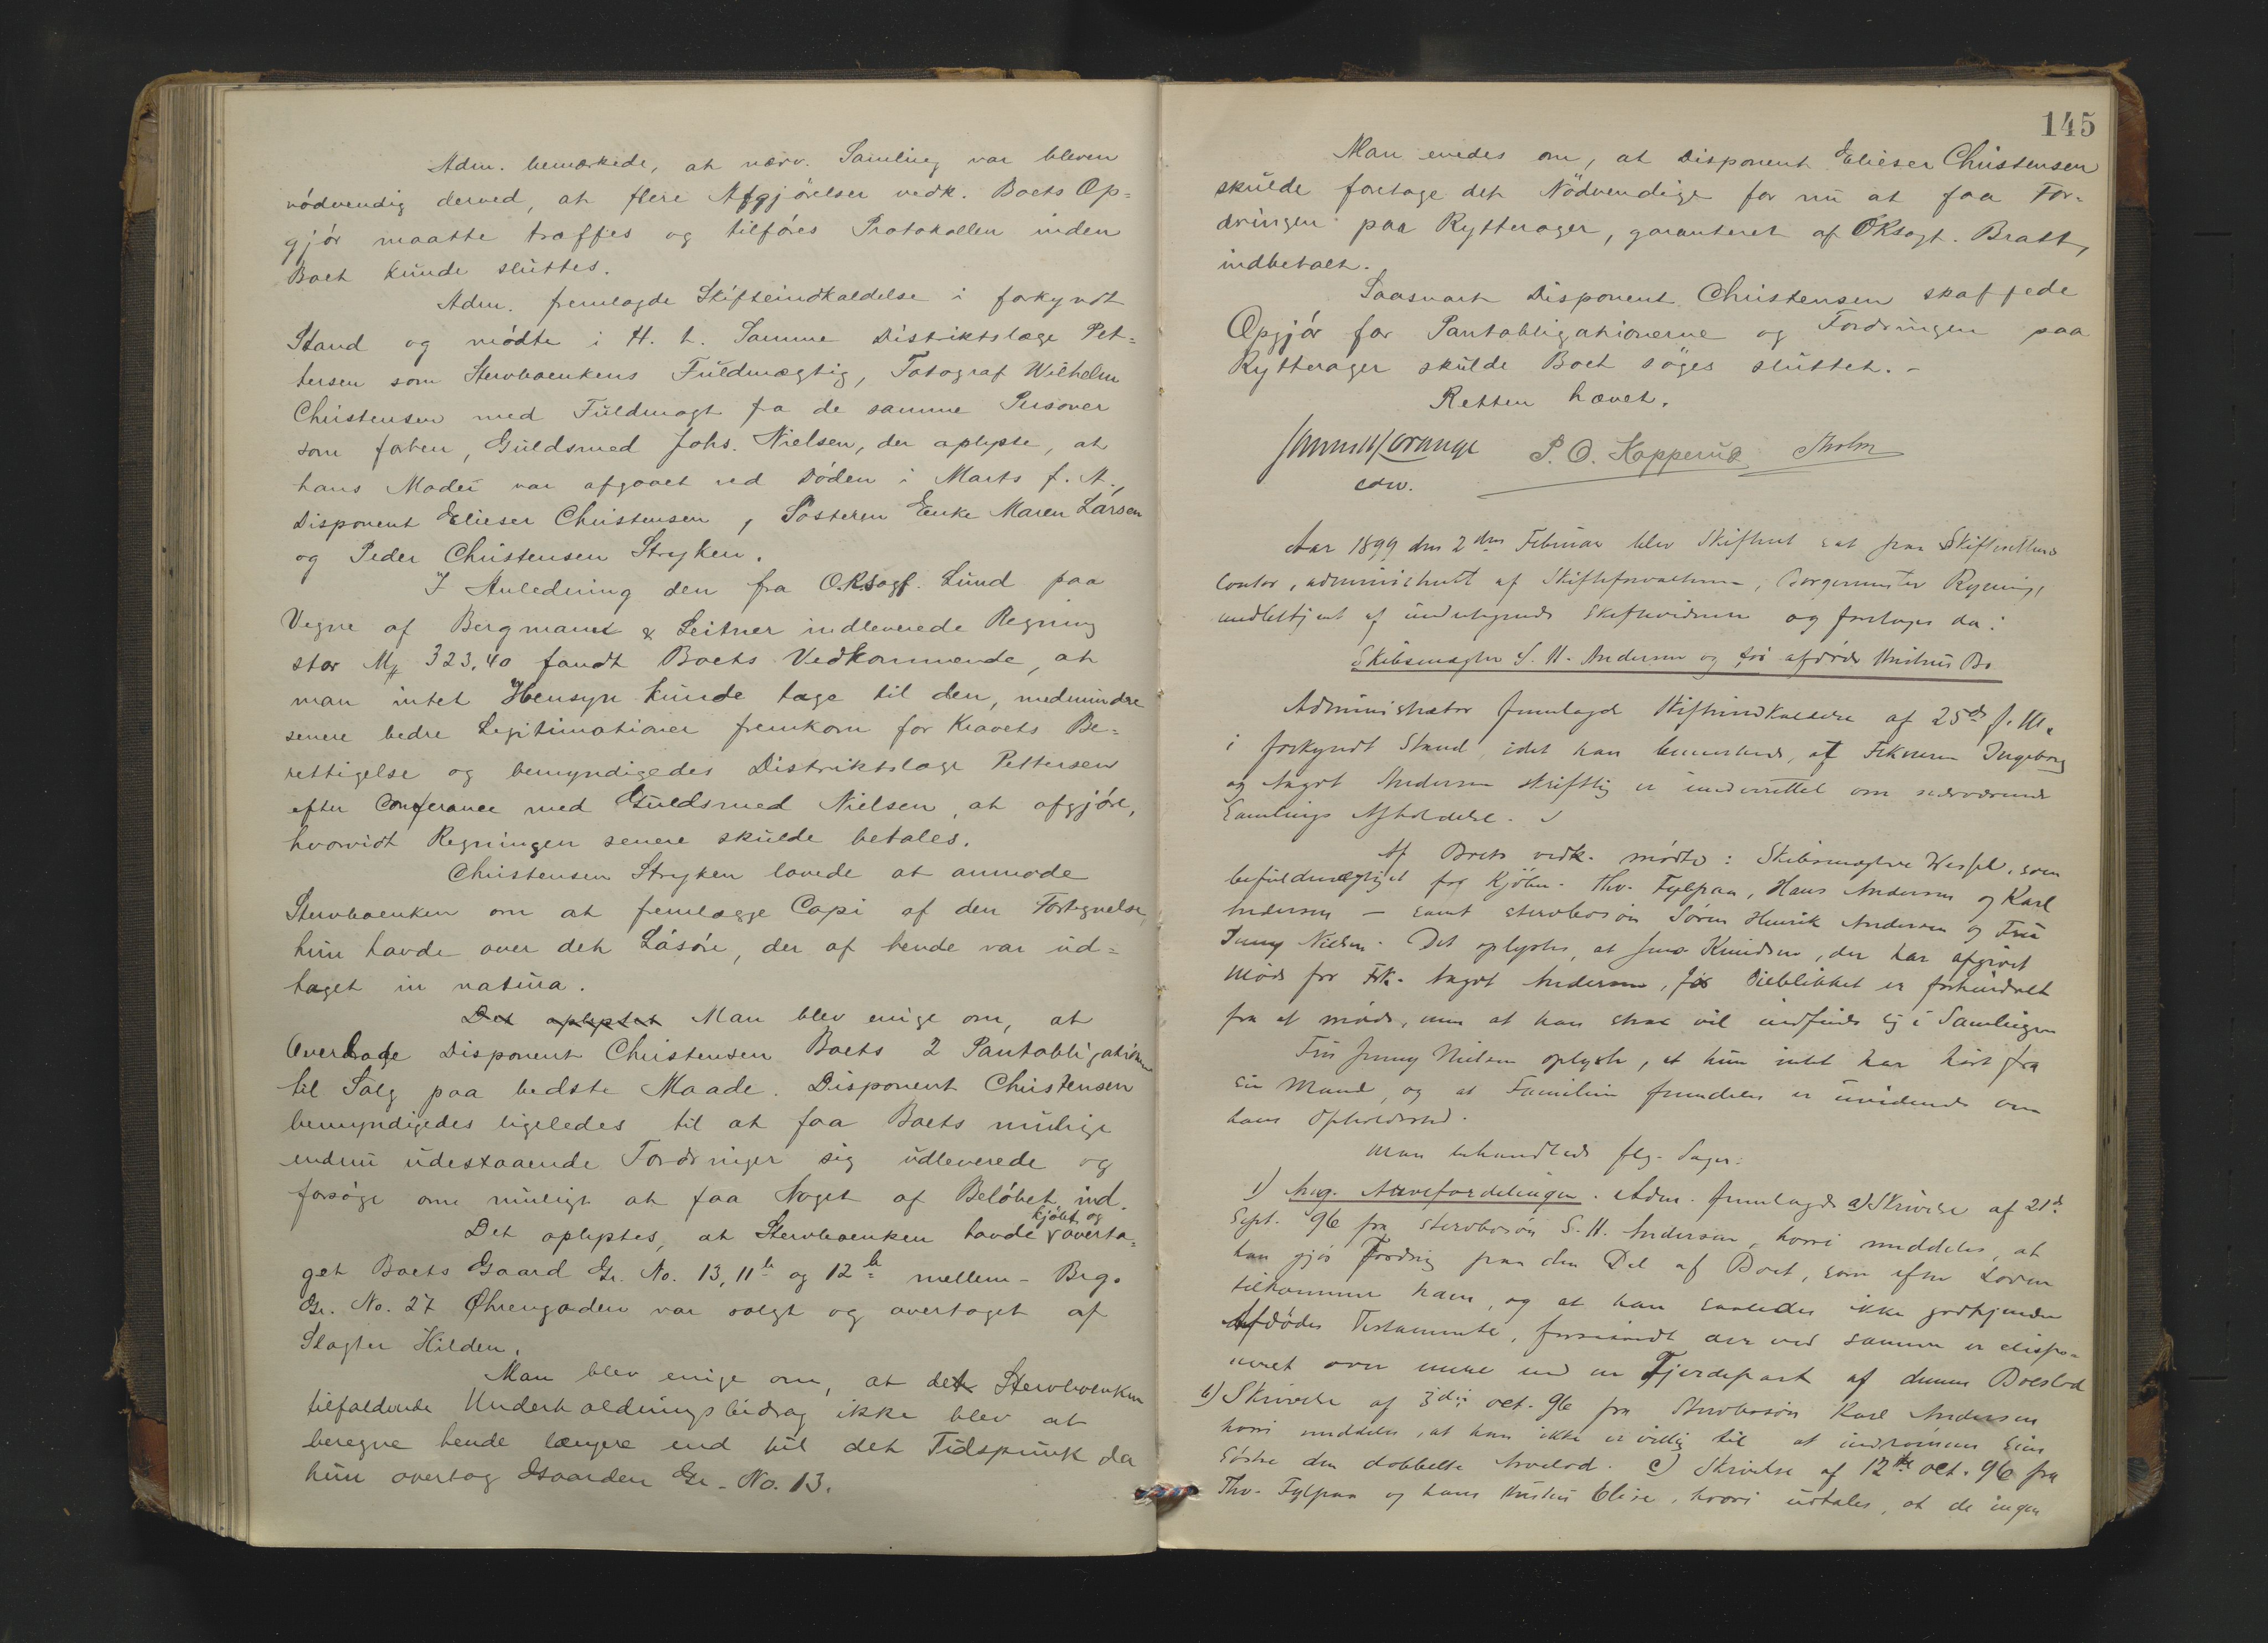 Adm. bemærkede, at nærv. Samling var bleven
nödvendig derved, at flere Afgjörelser vedk. Boets Op-
gjör maatte træffes og tilföres Protokollen inden
Boet kunde sluttes.
Adm. fremlagde Skifteindkaldelse i forkyndt
Stand og mödte i H. t. Samme Distriktslæge Pet-
tersen som Stervboenkens Fuldmægtig, Fotograf Wilhelm
Christensen med Fuldmagt fra de samme Personer
som forhen, Guldsmed Johs. Nielsen, der oplyste, at
hans Moder var afgaaet ved Döden i Marts f. A.,
Disponent Elieser Christensen, Sösteren Enke Maren Larsen
og Peder Christensen Stryken.
I Anledning den fra O.R.sagf. Lund paa
Vegne af Bergmann & Leitner indleverede Regning
stor M 323.40 fandt Boets Vedkommende, at
man intet Hensyn kunde tage til den, medmindre
senere bedre Legitimationer fremkom for Kravets Be-
rettigelse og bemyndigedes Distriktslæge Pettersen
efter Conferance med Guldsmed Nielsen, at afgjöre,
hvorvidt Regningen senere skulde betales.
Christensen Stryken lovede at anmode
Stervboenken om at fremlægge Copi af den Fortegnelse,
hun havde over det Lösöre, der af hende var ud-
taget in natura.
Det oplystet Man blev enige om, at
Overdrage Disponent Christensen Boets 2 Pantobligationer
til Salg paa bedste Maade. Disponent Christensen
bemyndigedes ligeledes til at faa Boets mulige
endnu udestaaende Fordringer sig udleverede og
forsöge om muligt at faa Noget af Belöbet ind.
Det oplystes, at Stervboenken havde kjöbt og overta-
get Boets Gaard Gr. No. 13, 11b og 12b mellem- Brg.
Gr. No. 27 Øhrengaden var solgt og overtaget af
Slagter Hilden.
Man blev enige om, at det Stervboenken
tilfaldende Underholdningsbidrag ikke blev at
beregne hende længere end til det Tidspunk da
hun overtog Gaarden Gr. No. 13.
145
Man enedes om, at Disponent Elieser Christensen
skulde foretage det Nödvendige for nu at faa For-
dringen paa Rytterager, garanteret af ORsagf. Bratt,
indbetalt.
Saasnart Disponent Christensen skaffede
Opgjör for Pantobligationerne og Fordringen paa
Rytterager skulde Boet söges sluttet. -
Retten hævet.
P. O. Kopperud Tholm
Aar 1899 den 2den Februar blev Skifteret sat paa Skifterettens
Contor, administreret af Skifteforvalteren, Borgermester Rygning,
medbetjent af undertegnede Skiftevidner og foretoges da:
Skibsmægler S. H. Andersen og før afdöde Hustrus Bo
Administrator fremlagde Skifteindkaldelse af 25de f. M.
i forkyndt Stand, idet han bemærkede, at Frknerne Ingeborg
og Aagot Andersen skriftlig er underrettet om nærværende
Samlings Afholdelse.
Af Boets vedk. mödte: Skibsmægler Wessel, som
befuldmægtiget for Kjöbm. Thv. Fylpaa, Hans Andersen og Karl
Andersen - samt stervbosön Sören Henrik Andersen og Fru
Jenny Nielsen. Det oplystes, at Jens Knudsen, der har afgivet
Möde for Frk. Aagot Andersen, for Öieblikket er forhindret
fra at möde, men at han strax vil indfinde sig i Samlingen
Fru Jenny Nielsen oplyste, at hun intet har hört fra
sin Mand, og at Familien fremdeles er uvidende om
hans Opholdssted.
Man behandlede flg. Sager:
1) Ang. Arvefordelingen. Adm. fremlagde a) Skrivelse af 21de
Sept. 96 fra stervbosön S. H. Andersen, hvori meddeles, at
han gjör Fordring paa den Del af Boet, som efter Loven
tilkommer ham, og at han saaledes ikke godkjender
Afdödes Testamente, forsaavidt der ved samme er dispo-
neret over mere end en Fjerdepart af dennes Boeslod
b) Skrivelse af 3die oct. 96 fra Stervbosön Karl Andersen
hvori meddeles, at han ikke er villig til at indrömme sine
Söstre den dobbelte Arvelod. c) Skrivelse af 12te oct. 96 fra
Thv. Fylpaa og hans Hustru Elise, hvori udtales, at de ingen